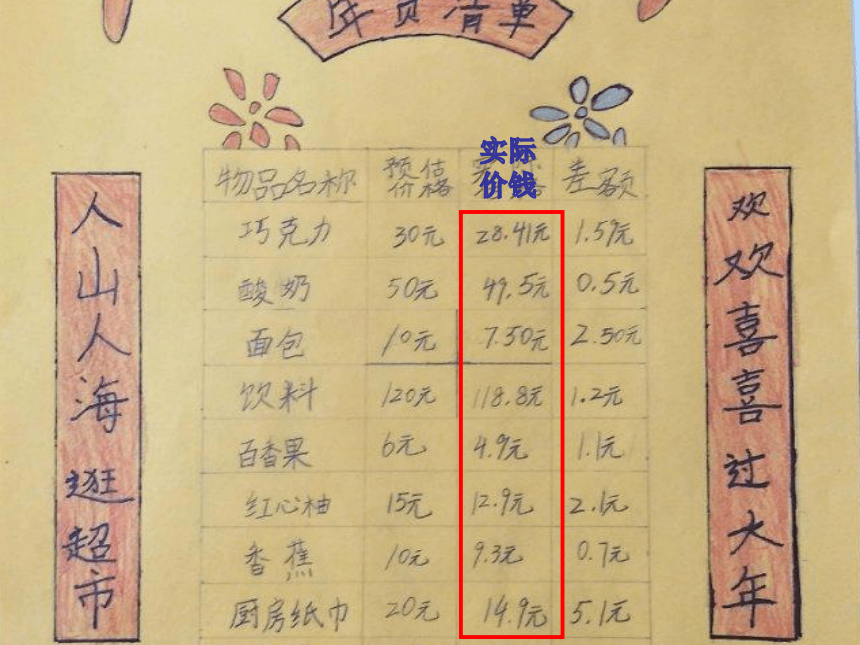 年货清单
物品名称 预估价格 实际价钱 差额
巧克力 30元 28.41元 1.59元
酸奶 50元 49.5元 0.5元
面包 10元 7.50元 2.50元
饮料 120元 118.8元 1.2元
百香果 6元 4.9元 1.1元
红心柚 15元 12.9元 2.1元
香蕉 10元 9.3元 0.7元
厨房纸巾 20元 14.9元 5.1元
人山人海逛超市
欢欢喜喜过大年